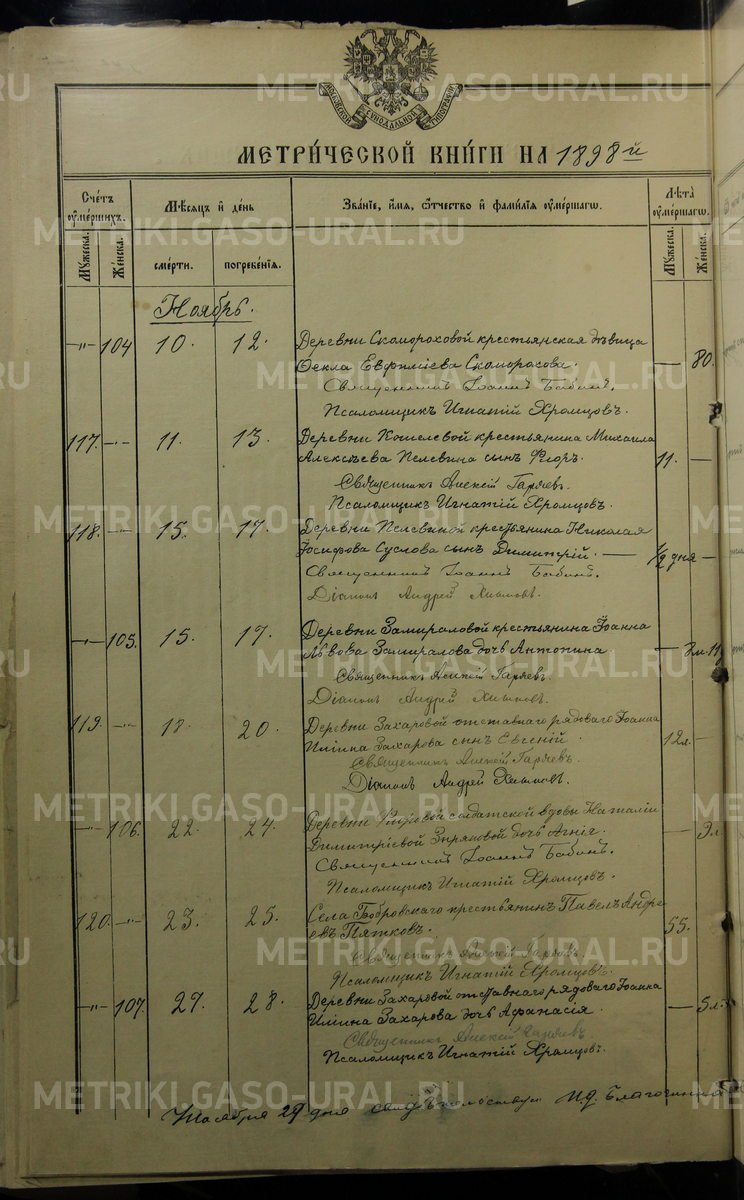 METRIKI.GASO-URAL.RU
МОСКОВСКОЙ СУНОДАЛЬНОЙ ТИПОГРАФІИ
МЕТРИ́ЧЕСКОЙ КНИ́ГИ НА 1898й
Сче́тъ ѹме́ршихъ.
Мѣ́сяцъ и день
Зва́ніе, и́мя, ѻ́тчество и фами́лія ѹме́ршагѡ.
Лѣ́та ѹме́ршагѡ.
Му́жеска. Же́нска.
сме́рти. погребе́нія.
Му́жеска. Же́нска.
Ноябрь.
—"— 104 10. 12. Деревни Скомороховой крестьянская дѣвица
Ѳекла Евфиміева Скоморохова. — 80.
Священникъ Іоаннъ Бабинъ.
Псаломщикъ Игнатій Хромцовъ.
117. —"— 11. 13. Деревни Кошелевой крестьянина Михаила
Алексѣева Пелевина сынъ Егоръ. 11. —
Священникъ Алексій Гаряевъ.
Псаломщикъ Игнатій Хромцовъ.
118. —"— 15. 17. Деревни Пелевиной крестьянина Николая
Іосифова Суслова сынъ Димитрій. — 1/2 дня —
Священникъ Іоаннъ Бабинъ.
Діаконъ Андрей
—"— 105. 15. 17. Деревни Замираловой крестьянина Іоанна
Львова Замиралова дочь Антонина.
Священникъ Алексій Гаряевъ.
Діаконъ Андрей
119. —"— 18. 20. Деревни Захаровой отставнаго рядоваго Іоанна
Иліина Захарова сынъ Евгеній. 12л. —
Священникъ Алексій Гаряевъ.
Діаконъ Андрей
—"— 106. 22. 24. Деревни солдатской вдовы Наталіи
Димитріевой Зыряновой дочь Агнія. —
Священникъ Іоаннъ Бабинъ.
Псаломщикъ Игнатій Хромцовъ.
120. —"— 23. 25. Села Бобровскаго крестьянинъ Павелъ Андре
евъ Пятковъ. 55. —
Священникъ Алексій Гаряевъ.
Псаломщикъ Игнатій Хромцовъ.
—"— 107. 27. 28. Деревни Захаровой отставнаго рядоваго Іоанна
Иліина Захарова дочь Афанасія. — 5л.
Священникъ Алексій Гаряевъ
Псаломщикъ Игнатій Хромцовъ.
Ноября 29 дня свидѣтельствую И.д. Благочиннаго